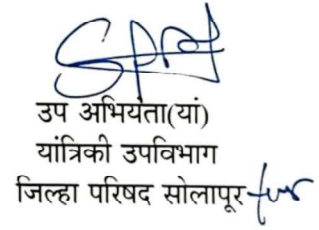 उप अभियंता(यां)
यांत्रिकी उपविभाग
जिल्हा परिषद सोलापूर